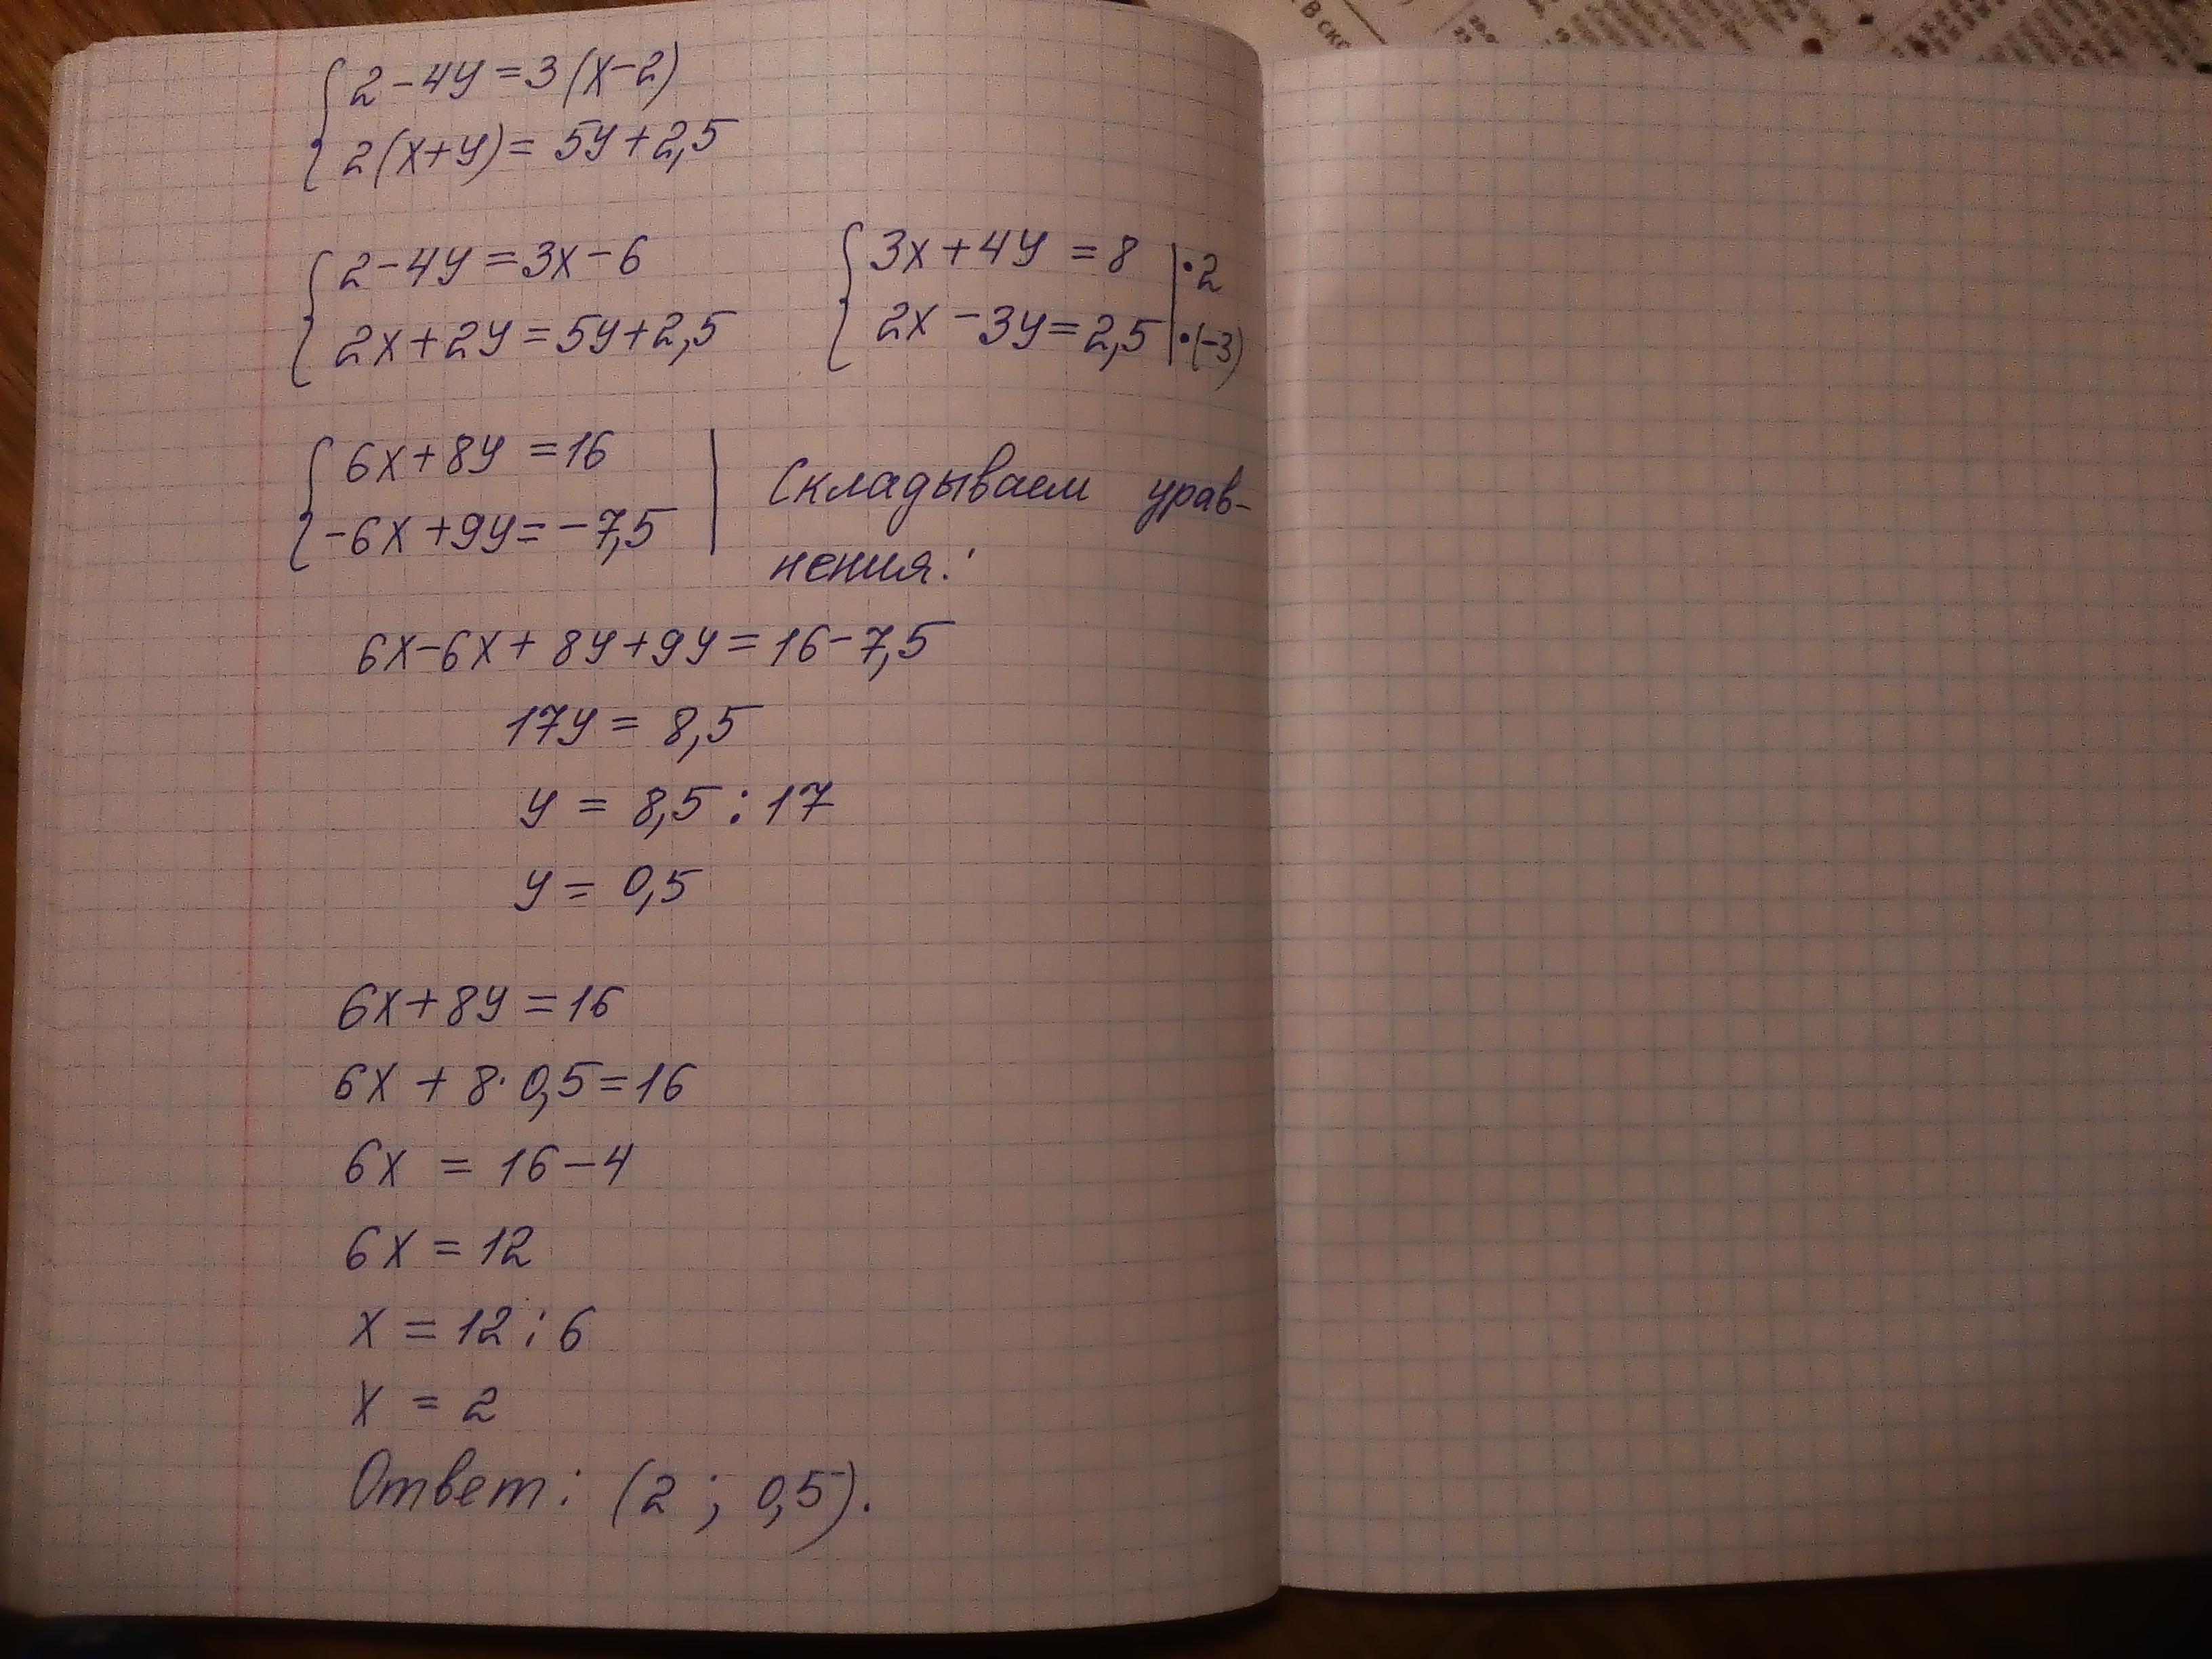 2-4y=3(x-2)
2(x+y)=5y+2,5
2-4y=3x-6
2x+2y=5y+2,5
3x+4y=8 | ·2
2x-3y=2,5 | ·(-3)
6x+8y=16
-6x+9y=-7,5
Складываем урав-
нения:
6x-6x+8y+9y=16-7,5
17y=8,5
y=8,5:17
y=0,5
6x+8y=16
6x+8·0,5=16
6x=16-4
6x=12
x=12:6
x=2
Ответ: (2; 0,5).